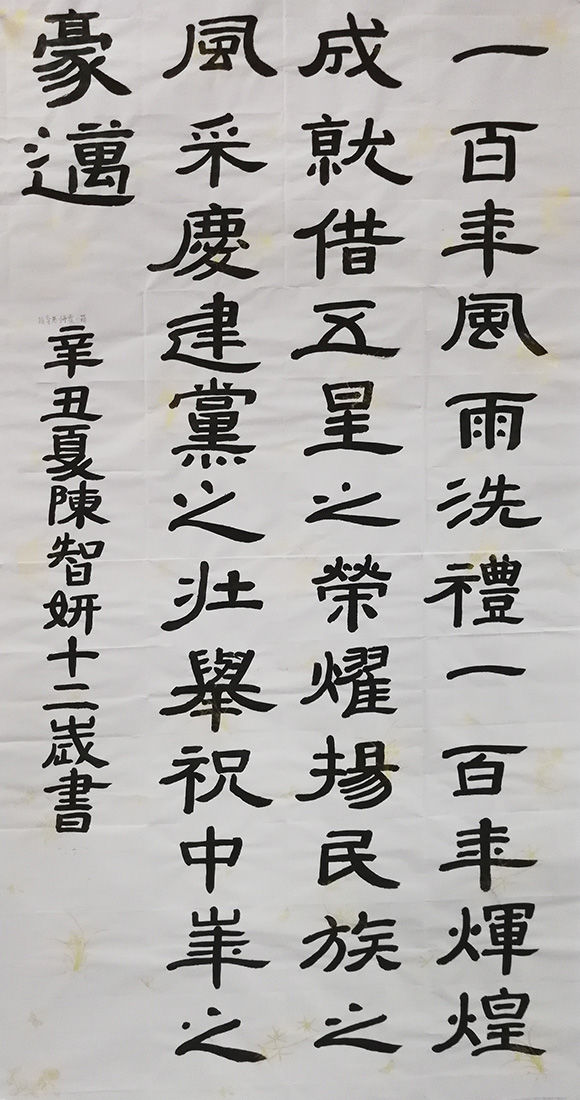 一百年風雨洗禮一百年煇煌
成就借五星之榮耀揚民族之
風采慶建黨之壯舉祝中崋之
豪邁
辛丑夏陳智妍十二歲書